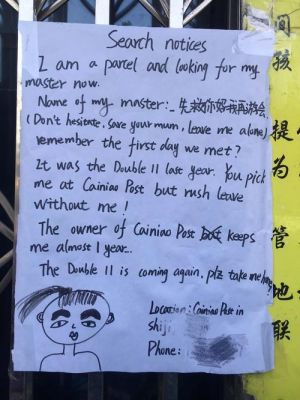 Search notices
I am a parcel and looking for my
master now.
Name of my master:
(Don't hesitate, save your mum, leave me alone)
remember the first day we met?
It was the Double 11 last year. You pick
me at Cainiao Post but rush leave
without me!
The owner of Cainiao Post keeps
me almost 1 year..
The Double 11 is coming again, plz take me home
Location: Cainiao Post in
Shiji
Phone:
间
孩
提
为
管
地
联